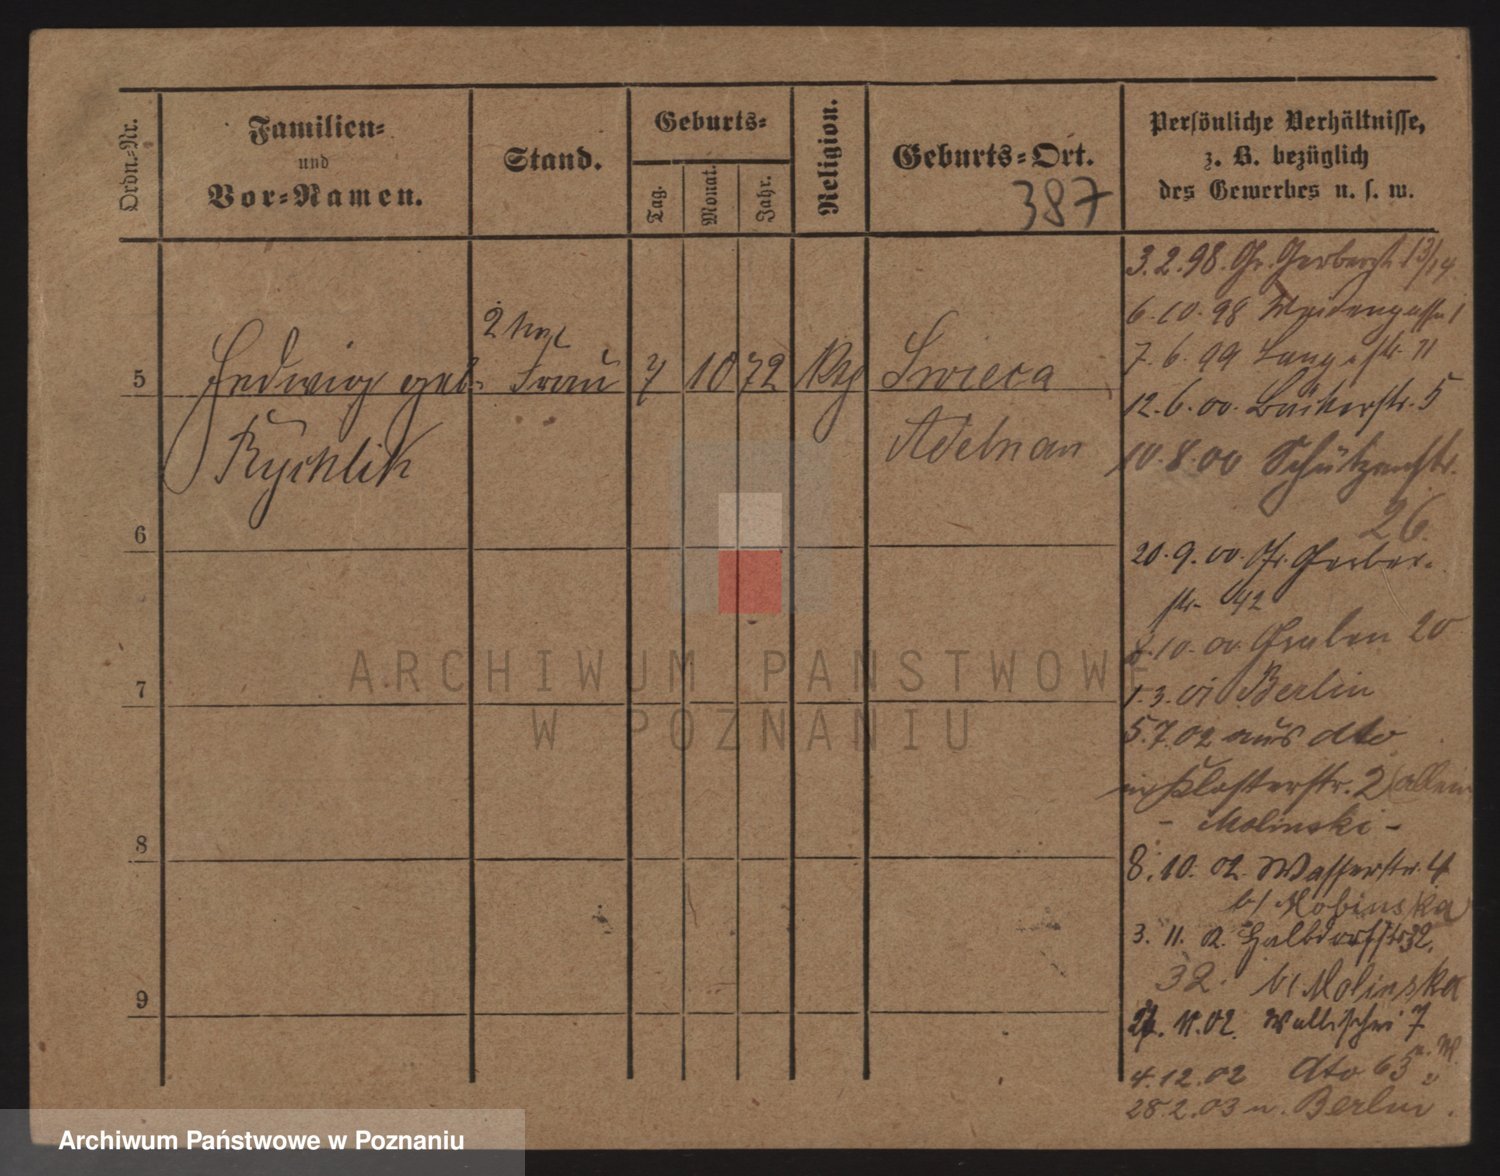 Ordn.-Nr.
Familien-
und
Vor-Namen.
Stand.
Geburts-
Tag.
Monat.
Jahr.
Religion.
Geburts-Ort.
387
Persönliche Verhältnisse,
z. B. bezüglich
des Gewerbes u. s. w.
5
Hedwig geb.
Rychlik
Frau
7
10
72
Swieca
Adelnau
6
7
8
9
3.2.98. Gr. Gerberstr. 13/14
6.10.98 Weidengasse 1
7.6.99 Langestr. 11
12.6.00. Bäckerstr. 5
10.8.00 Schützenstr.
26.
20.9.00. Gr. Gerber-
str. 42
10.00 Graben 20
1.3.01 Berlin
5.7.02 aus dto
Klosterstr. 2 (allein
- Molinski -
8.10.02. Wasserstr. 4
b/ Mobinska
3.11. Halbdorfstr 32.
32. b/ Molinska
11.02. Wallischei 7
4.12.02 dto 63
28.2.03 n. Berlin.
ARCHIWUM PAŃSTWOWE
W POZNANIU
Archiwum Państwowe w Poznaniu